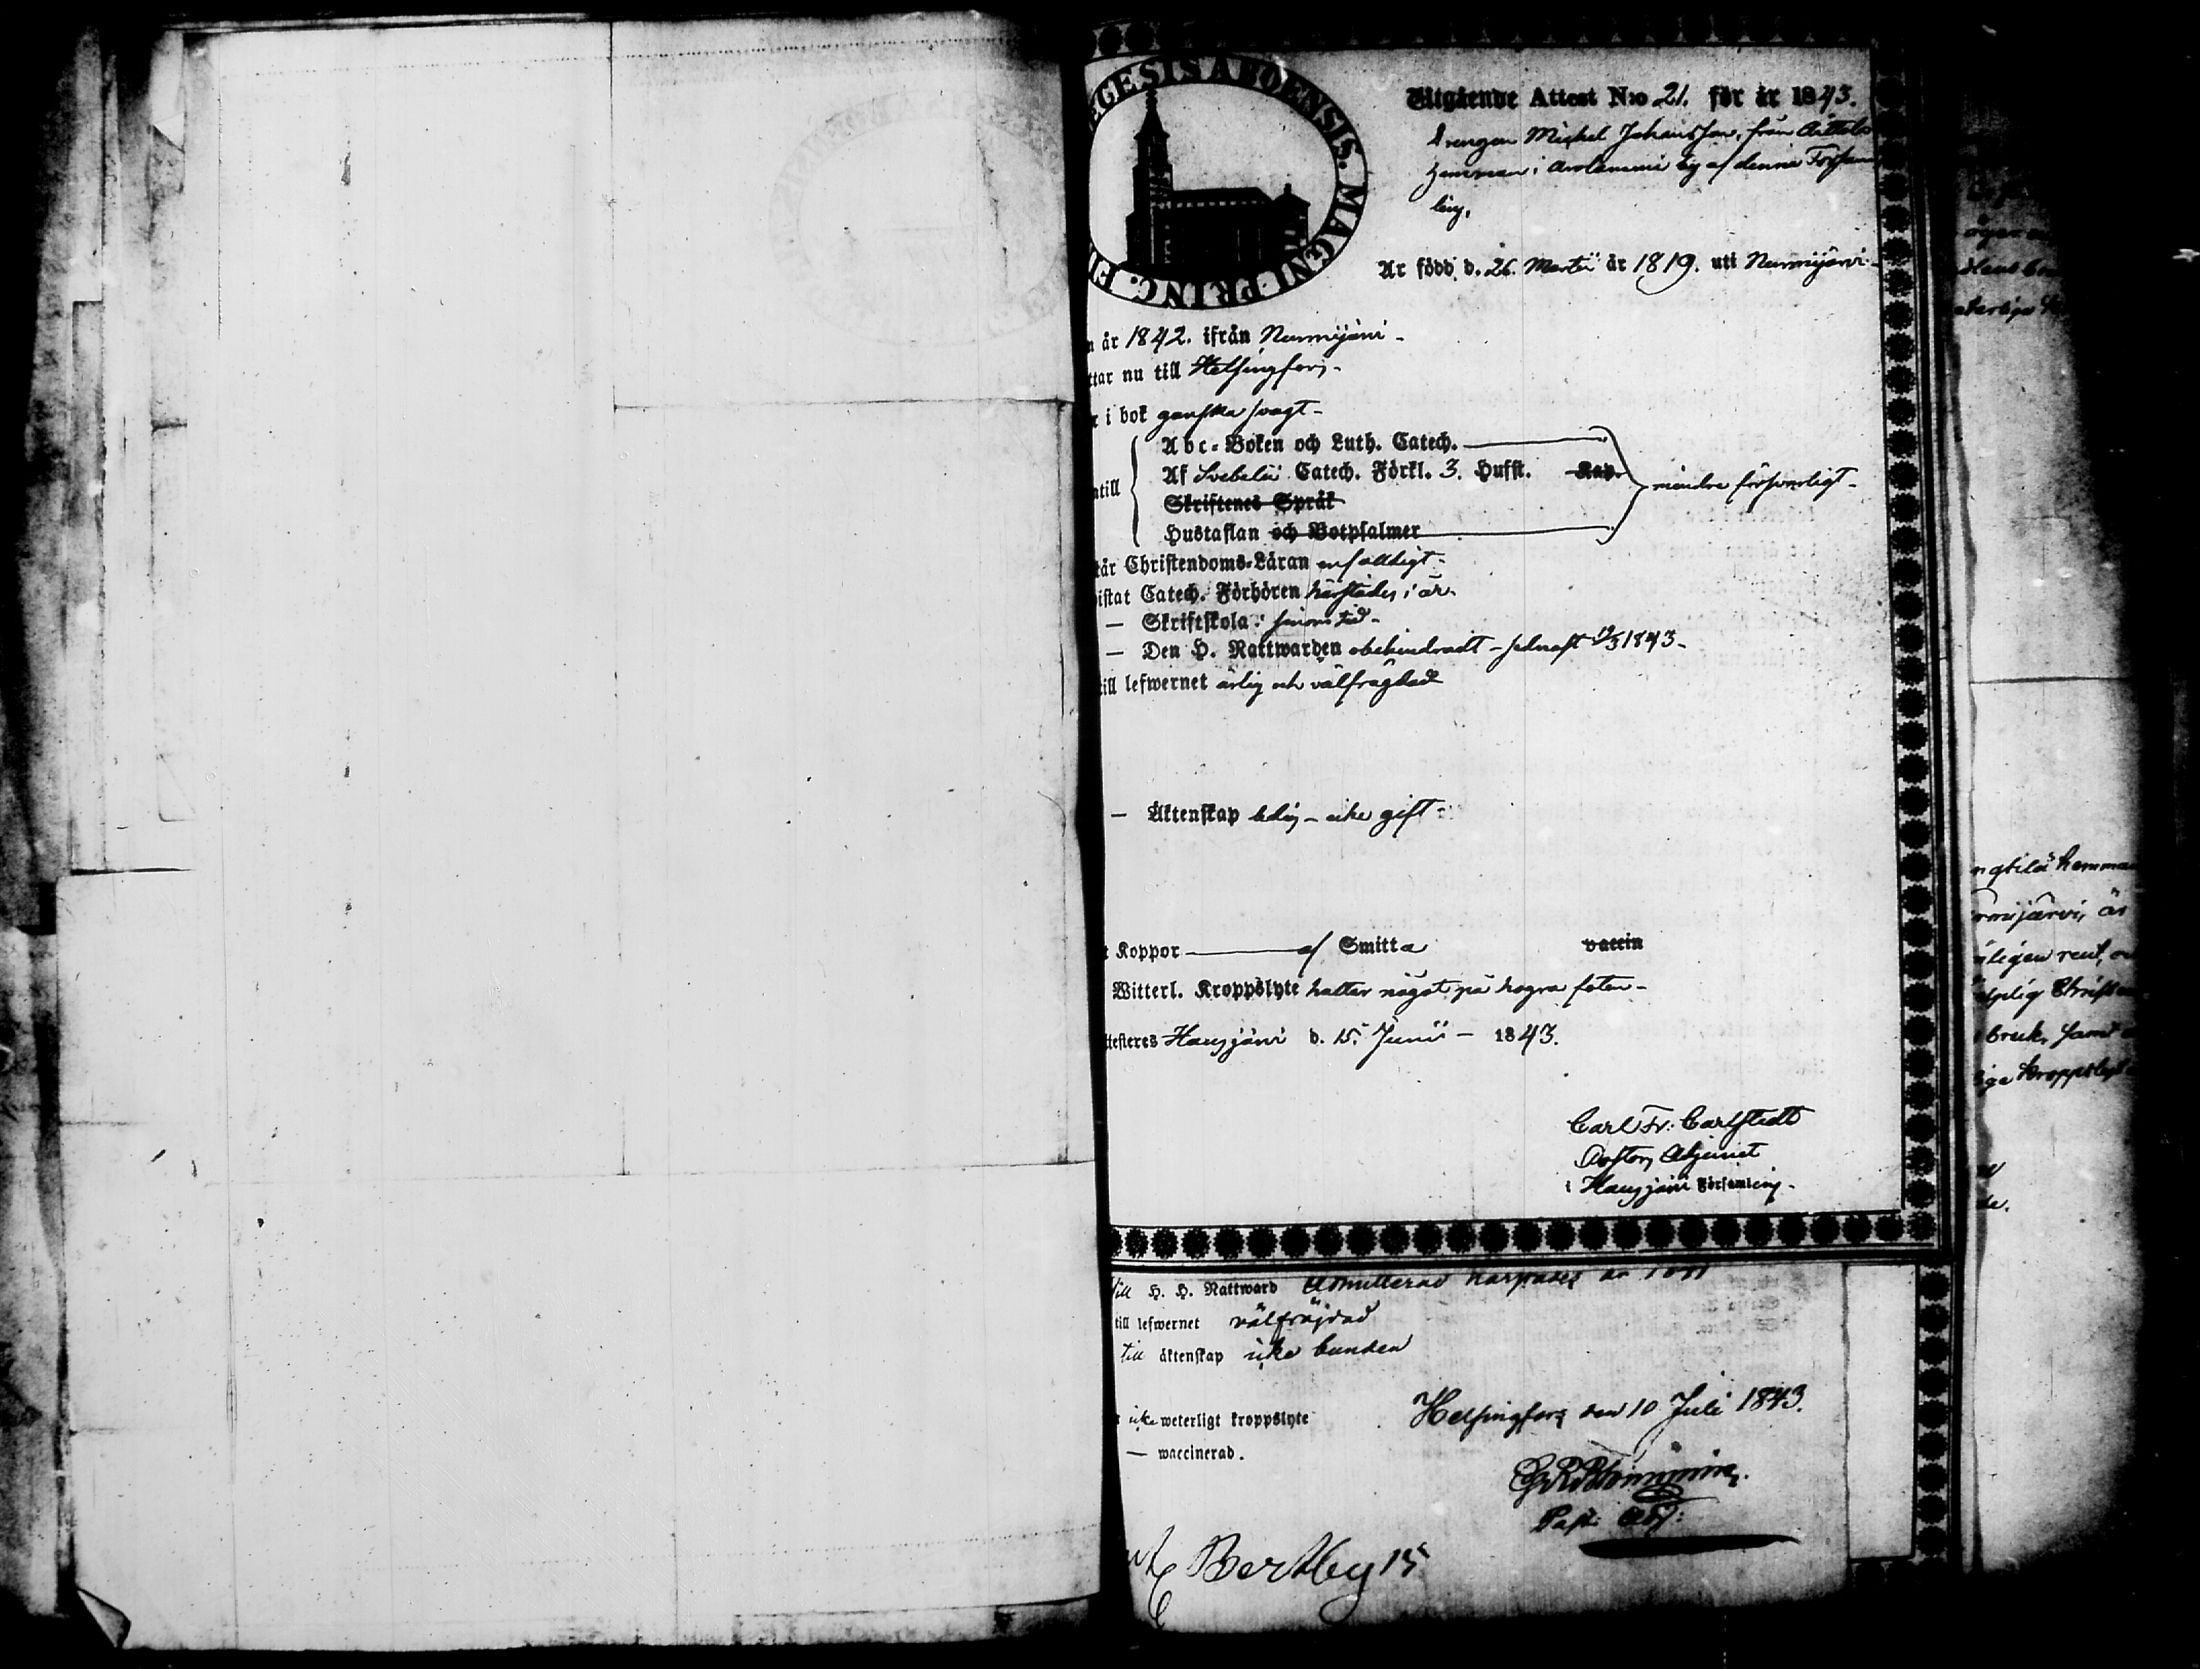 EGESIS ABOENSIS. MAGNI PRINC. FI
Utgående Attest N:o 21. för år 1843.
Drengen Michel Johansson, från
hemman i Arolammi by af denna Församling.
Är född d. 26. Martii år 1819. uti Nurmijärvi
n år 1842. ifrån Nurmijärvi -
ttar nu till Helsingfors -
r i bok ganska svagt -
Abc-Boken och Luth. Catech.
ntill Af Svebelii Catech. Förkl. 3. Hufst. Kap. mindre försvarligt -
Skriftenes Språk
Hustaflan och Botpsalmer
tår Christendoms-Läran enfaldigt -
istat Catech. Förhören härstädes i år.
— Skriftskola: sinom tid -
— Den H. Nattwarden obehindradt - sednast 12/3 1843 -
till lefwernet ärlig och välfrägdad
— Äktenskap ledig - icke gift -
t Koppor af Smitta vaccin
Witterl. Kroppslyte haltar något på högra foten -
ttesteres Hausjärvi d. 15. Junii - 1843.
Carl Fr: Carlstedt
Pastors Adjunct
i Hausjärvi Församling -
till H. H. Nattward Admitterad härstädes år
till lefwernet välfräjdad
till äktenskap icke bunden
icke weterligt kroppslyte
Helsingfors den 10 Juli 1843.
— waccinerad.
Past: Adj:
Bertby 15
hemma
är
ligen rent,
bruk, samt
ige kroppslyt
de.